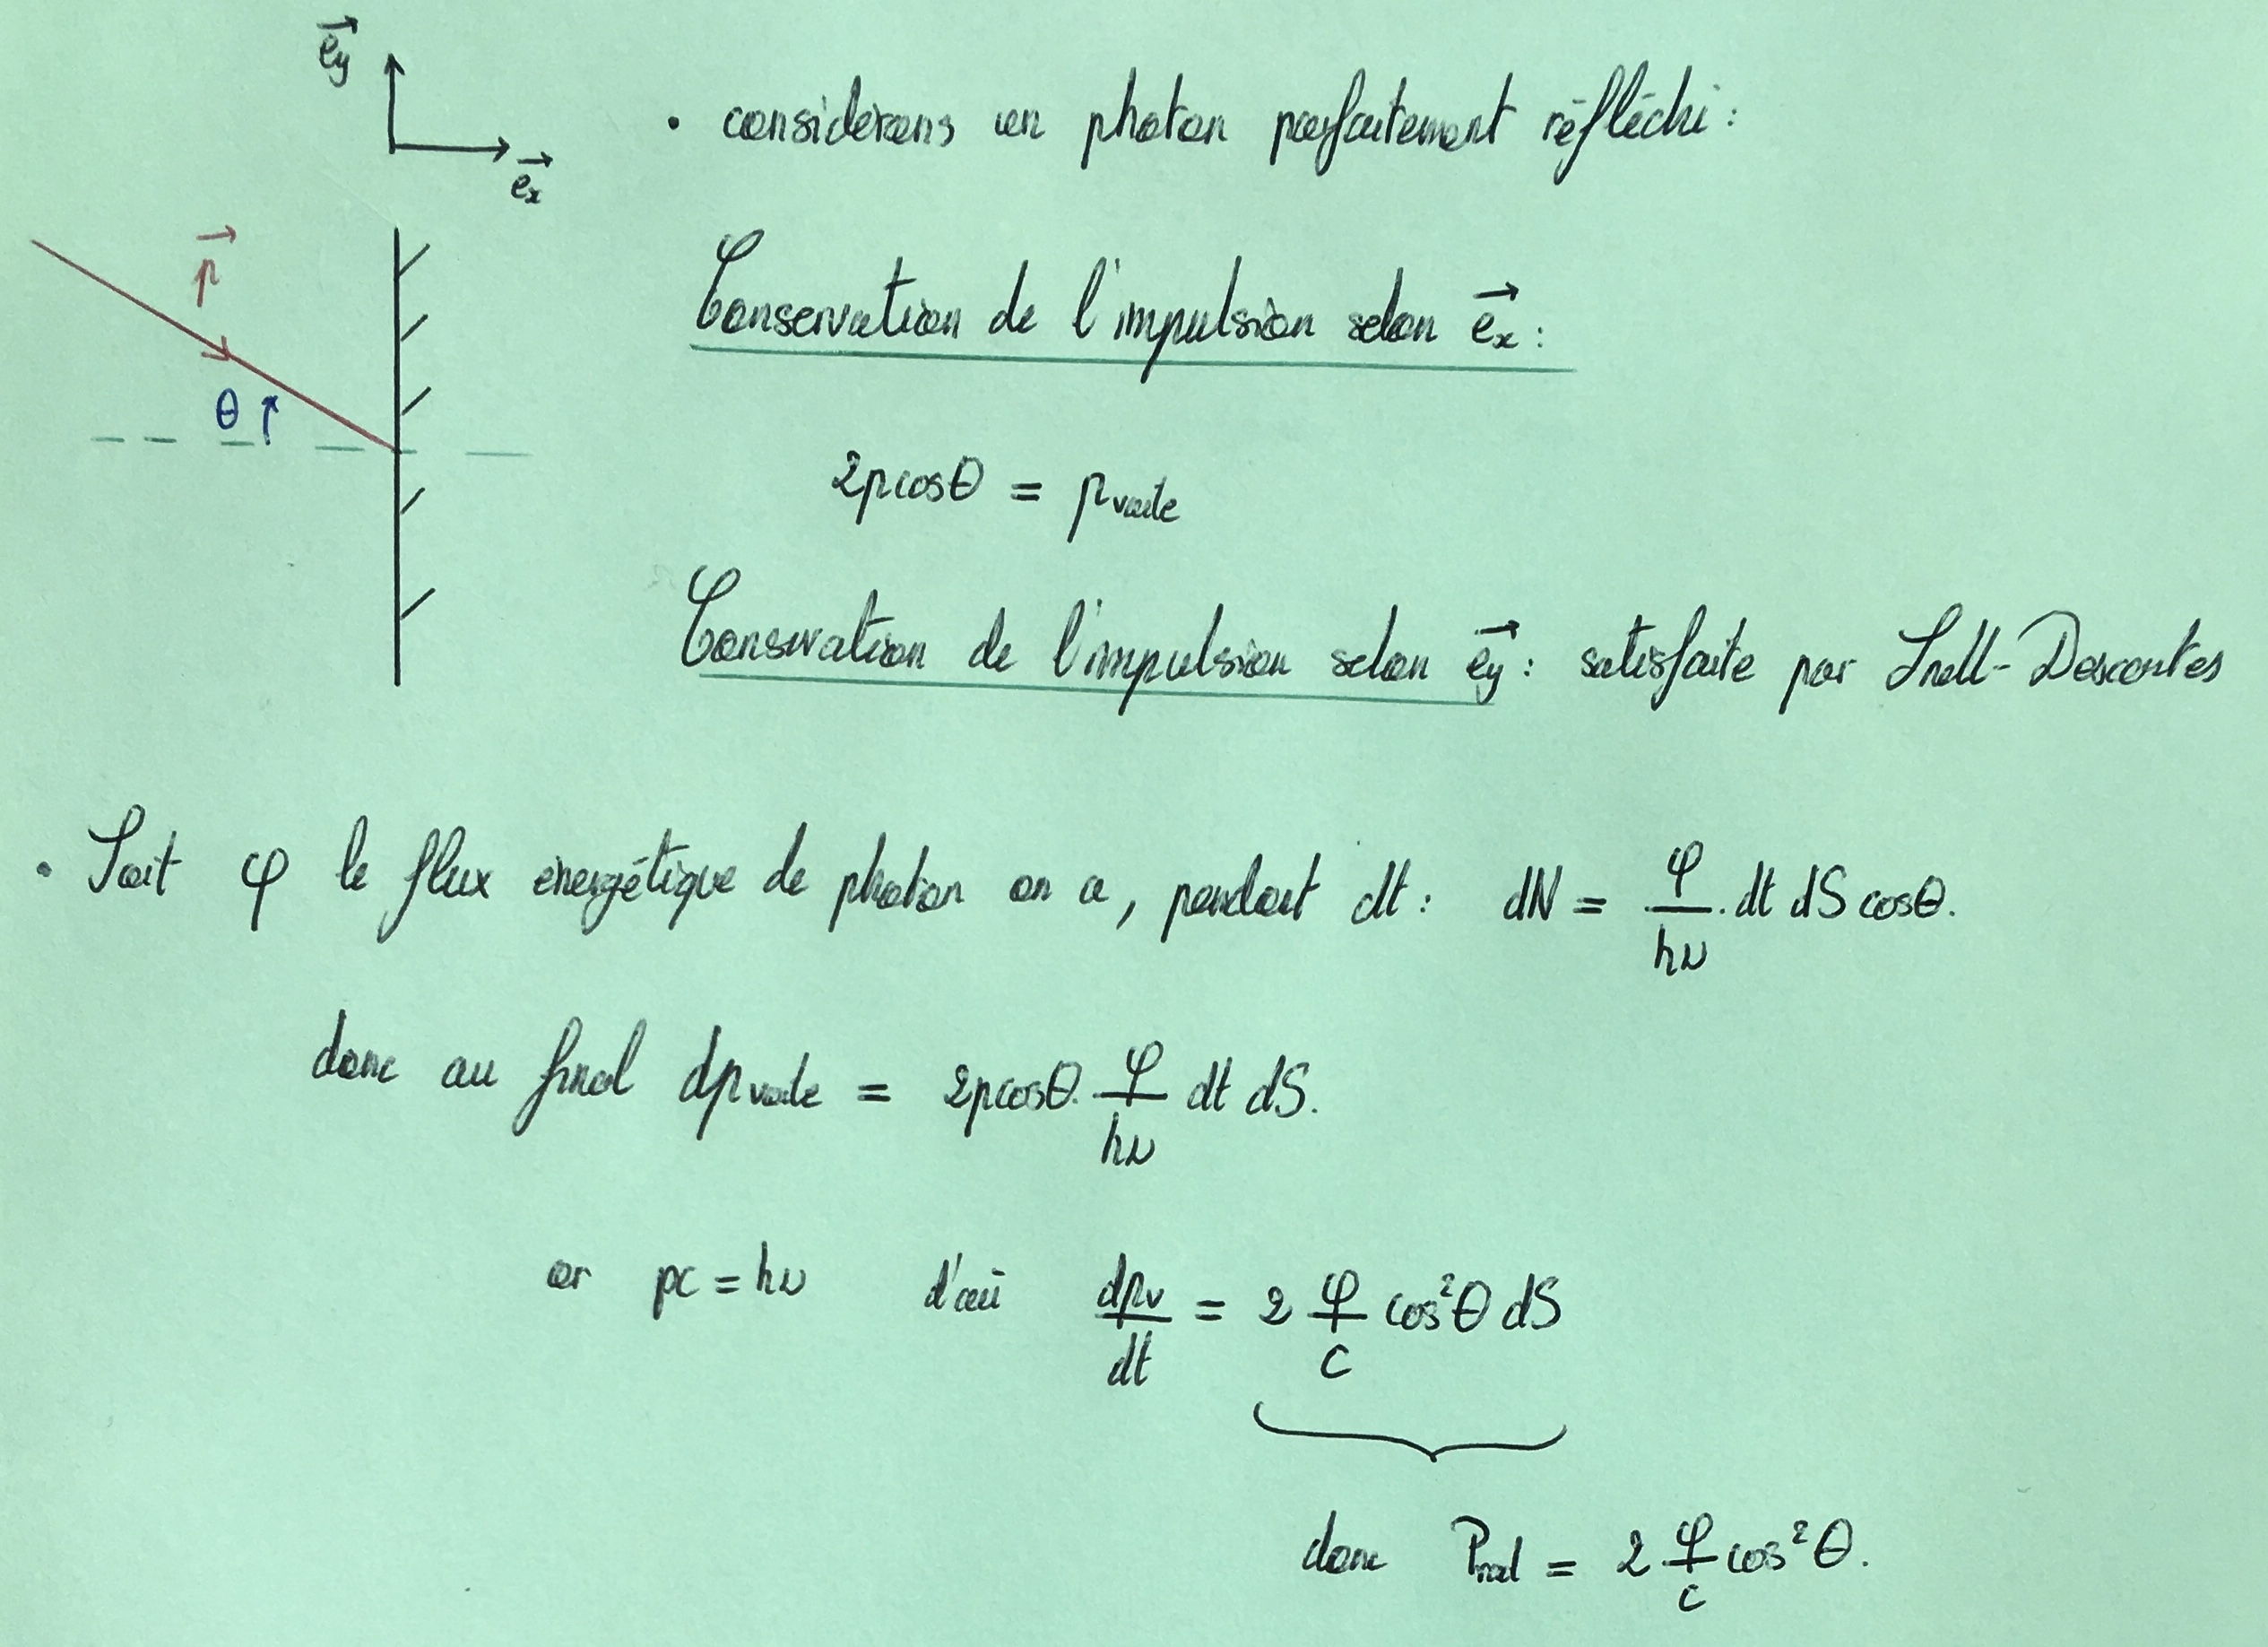 e⃗y
e⃗x
• considérons un photon parfaitement réfléchi :
p⃗
Conservation de l'impulsion selon e⃗x :
θ
2pcosθ = pvoile
Conservation de l'impulsion selon e⃗y : satisfaite par Snell-Descartes
• Soit φ le flux énergétique de photon on a, pendant dt : dN = φ/hν . dt dS cosθ.
donc au final dpvoile = 2pcosθ. φ/hν dt dS.
or pc = hν d'où dpv/dt = 2 φ/c cos²θ dS
donc Prad = 2 φ/c cos²θ.